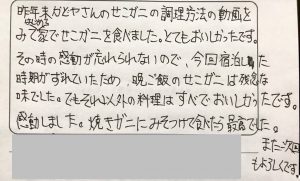 昨年末かどやさんのせこガニの調理方法の動画を
みて家でせこガニを食べました。とてもおいしかったです。
その時の感動が忘れられないので、今回宿泊した
時期がずれていたため、晩ご飯のせこガニは残念な
味でした。でもそれ以外の料理はすべておいしかったです。
感動しました。焼きガニにみそつけて食べたら最高でした。
また次回
もよろしくです。